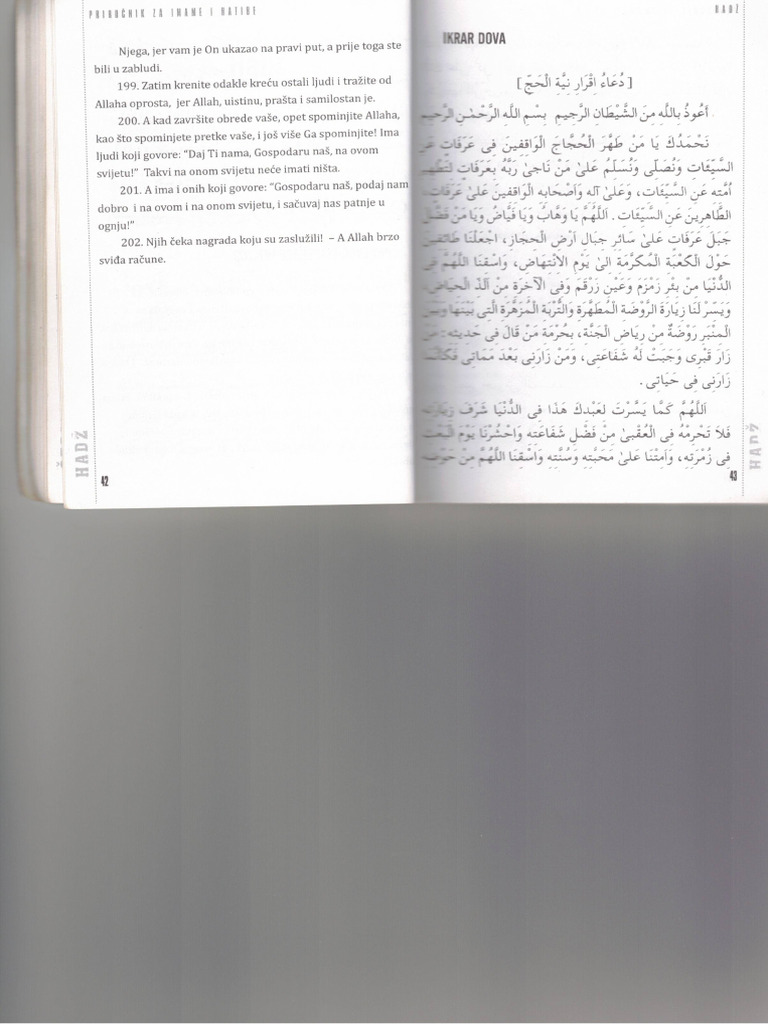 PRIRUČNIK ZA IMAME I HATIBE
Njega, jer vam je On ukazao na pravi put, a prije toga ste
bili u zabludi.
199. Zatim krenite odakle kreću ostali ljudi i tražite od
Allaha oprosta, jer Allah, uistinu, prašta i samilostan je.
200. A kad završite obrede vaše, opet spominjite Allaha,
kao što spominjete pretke vaše, i još više Ga spominjite! Ima
ljudi koji govore: “Daj Ti nama, Gospodaru naš, na ovom
svijetu!” Takvi na onom svijetu neće imati ništa.
201. A ima i onih koji govore: “Gospodaru naš, podaj nam
dobro i na ovom i na onom svijetu, i sačuvaj nas patnje u
ognju!”
202. Njih čeka nagrada koju su zaslužili! – A Allah brzo
sviđa račune.
HADŽ
42
HADŽ
IKRAR DOVA
[ دُعَاءُ اِقْرَارِ نِيَّةِ الْحَجِّ ]
اَعُوذُ بِاللّٰهِ مِنَ الشَّيْطَانِ الرَّجِيمِ بِسْمِ اللّٰهِ الرَّحْمٰنِ الرَّحِيمِ
نَحْمَدُكَ يَا مَنْ طَهَّرَ الْحُجَّاجَ الْوَاقِفِينَ فِى عَرَفَاتٍ عَنِ
السَّيِّئَاتِ وَنُصَلِّى وَنُسَلِّمُ عَلىٰ مَنْ نَاجىٰ رَبَّهُ بِعَرَفَاتٍ لِتَطْهِيرِ
اُمَّتِهِ عَنِ السَّيِّئَاتِ، وَعَلىٰ آلِهِ وَاَصْحَابِهِ الْوَاقِفِينَ عَلىٰ عَرَفَاتٍ،
الطَّاهِرِينَ عَنِ السَّيِّئَاتِ. اَللّٰهُمَّ يَا وَهَّابُ وَيَا فَيَّاضُ وَيَا مَنْ فَضَّلَ
جَبَلَ عَرَفَاتٍ عَلىٰ سَائِرِ جِبَالِ اَرْضِ الْحِجَازِ، اجْعَلْنَا طَائِفِينَ
حَوْلَ الْكَعْبَةِ الْمُكَرَّمَةِ اِلىٰ يَوْمِ الْاِنْتِهَاضِ، وَاسْقِنَا اللّٰهُمَّ فِى
الدُّنْيَا مِنْ بِئْرِ زَمْزَمَ وَعَيْنِ زَرْقَمَ وَفِى الْآخِرَةِ مِنْ اَلَذِّ الْحِيَاضِ،
وَيَسِّرْ لَنَا زِيَارَةَ الرَّوْضَةِ الْمُطَهَّرَةِ وَالتُّرْبَةِ الْمُزَهَّرَةِ الَّتِى بَيْنَهَا وَبَيْنَ
الْمِنْبَرِ رَوْضَةٌ مِنْ رِيَاضِ الْجَنَّةِ، بِحُرْمَةِ مَنْ قَالَ فِى حَدِيثِهِ: مَنْ
زَارَ قَبْرِى وَجَبَتْ لَهُ شَفَاعَتِى، وَمَنْ زَارَنِى بَعْدَ مَمَاتِى فَكَاَنَّمَا
زَارَنِى فِى حَيَاتِى.
اَللّٰهُمَّ كَمَا يَسَّرْتَ لِعَبْدِكَ هٰذَا فِى الدُّنْيَا شَرَفَ زِيَارَتِهِ
فَلَا تَحْرِمْهُ فِى الْعُقْبىٰ مِنْ فَضْلِ شَفَاعَتِهِ وَاحْشُرْنَا يَوْمَ الْبَعْثِ
فِى زُمْرَتِهِ، وَاَمِتْنَا عَلىٰ مَحَبَّتِهِ وَسُنَّتِهِ وَاسْقِنَا اللّٰهُمَّ مِنْ حَوْضِهِ
HADŽ
43